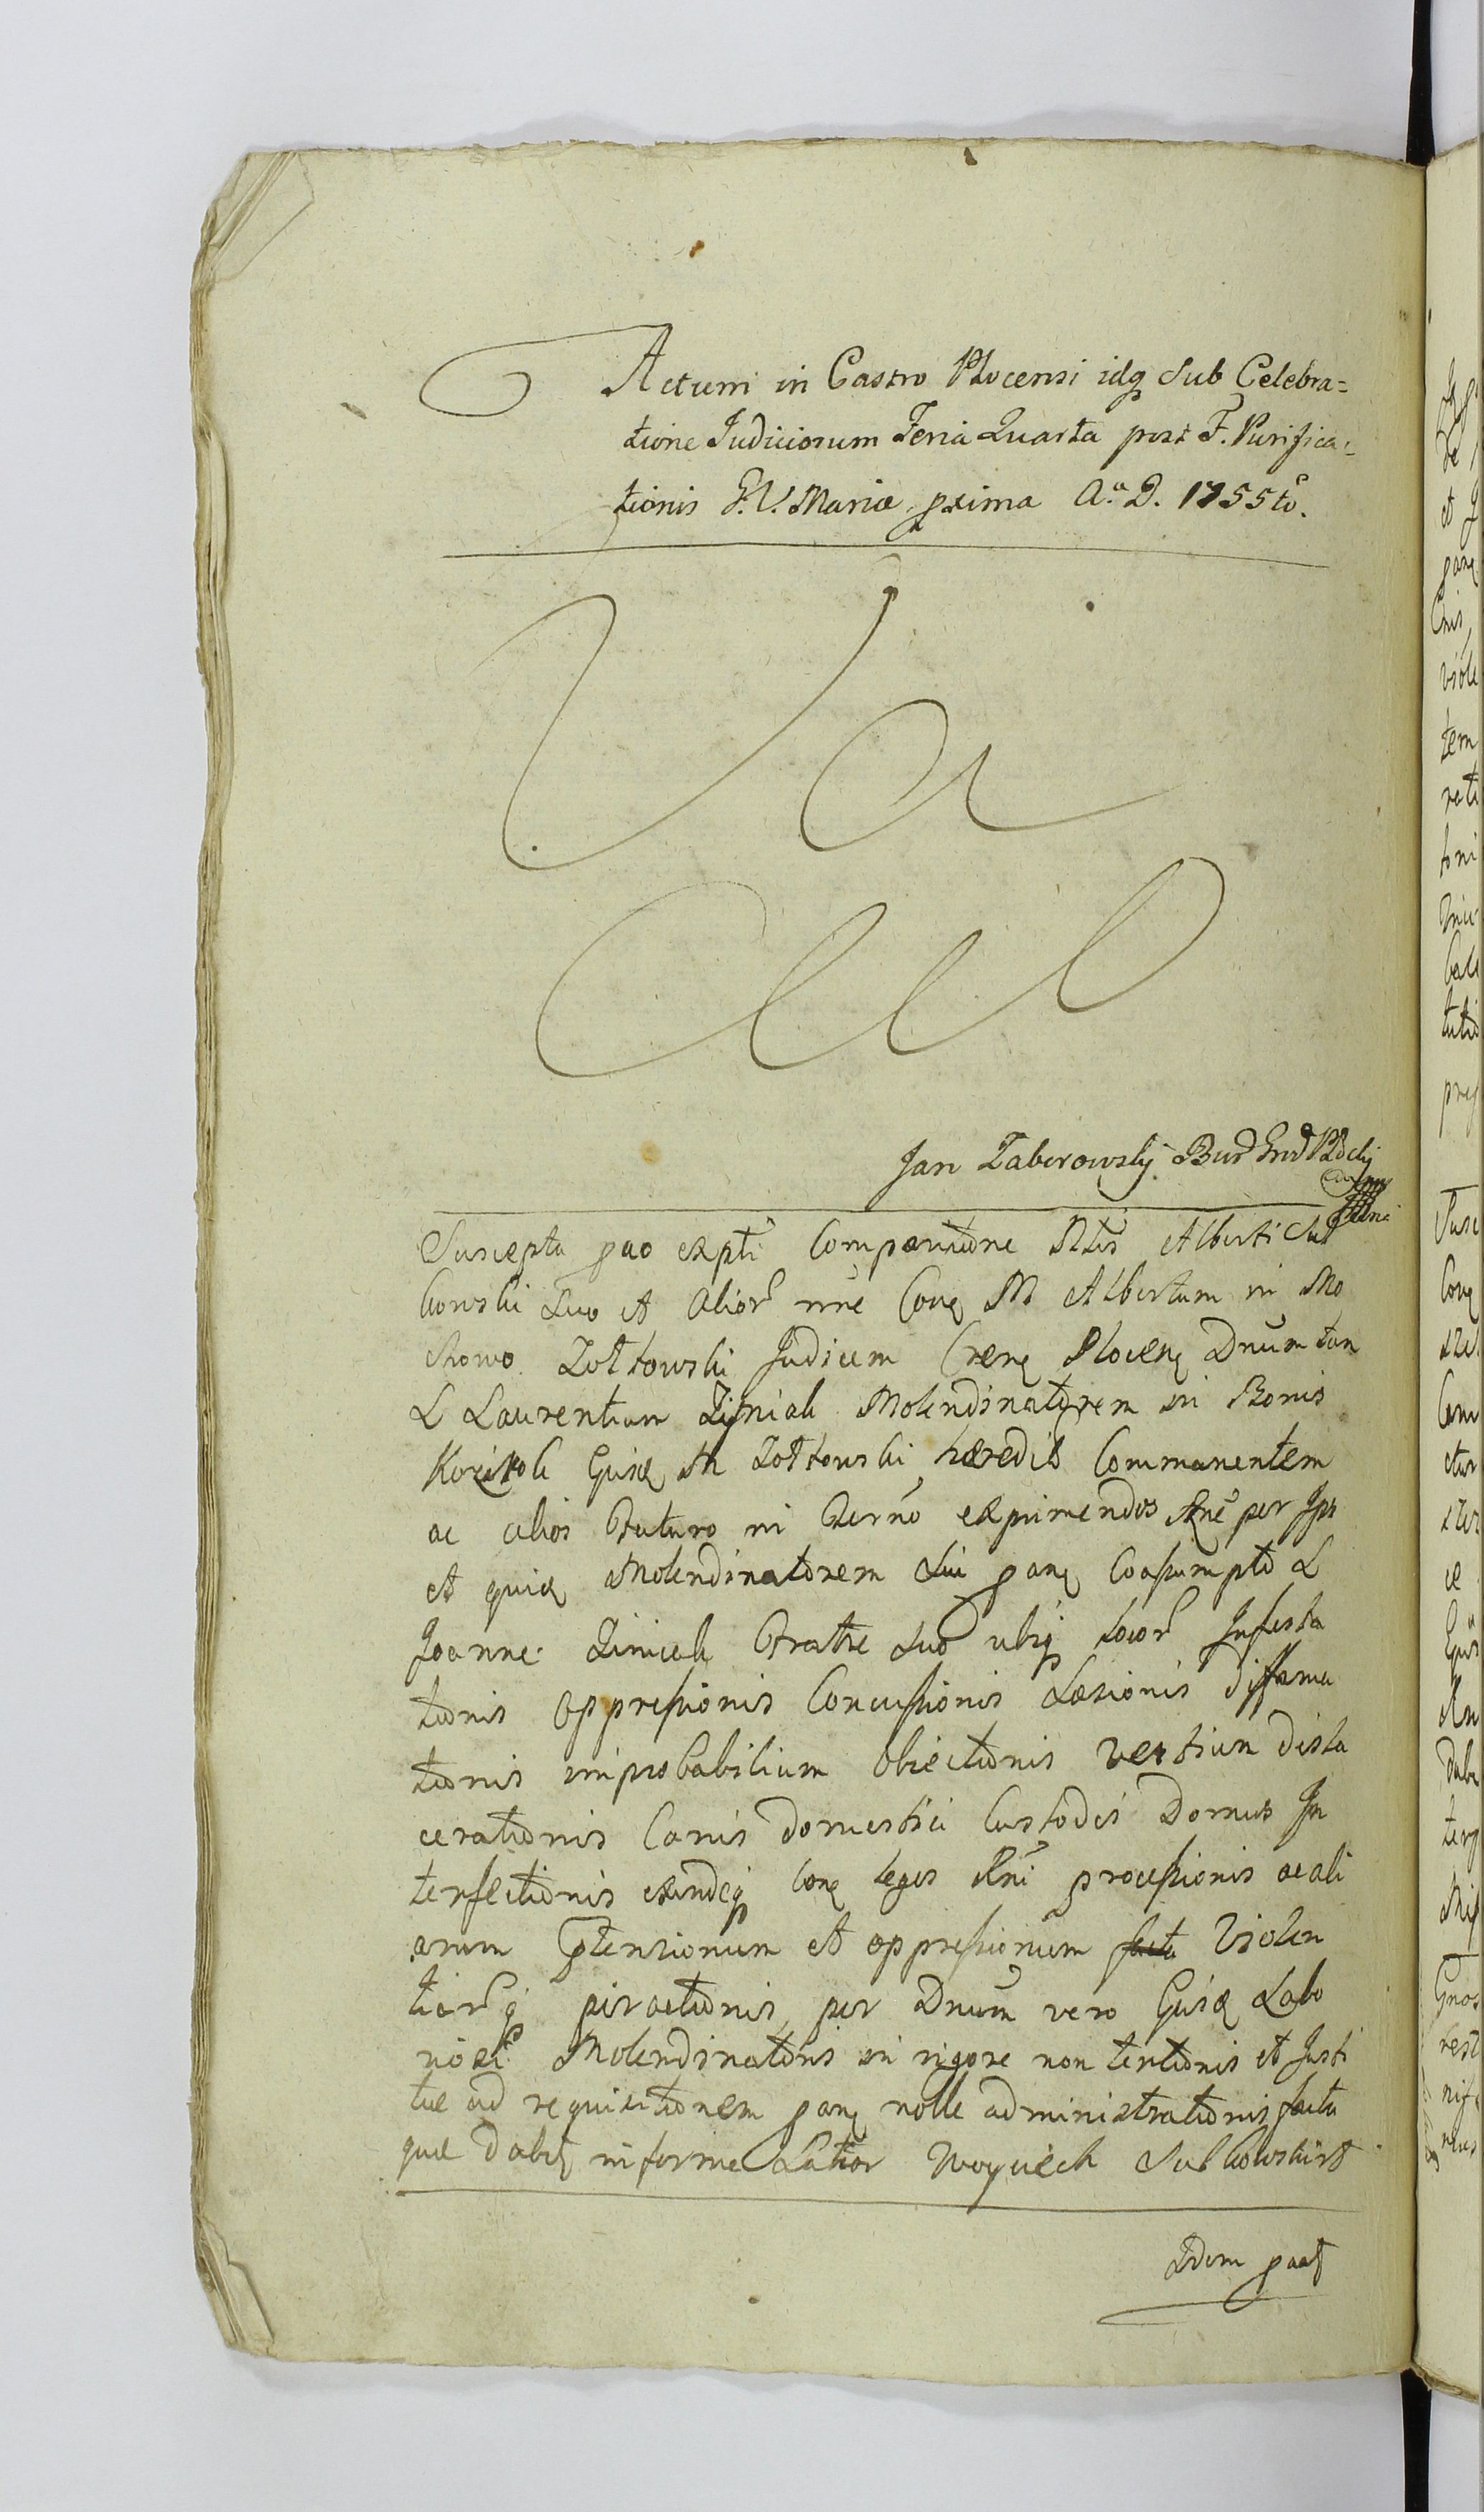 Actum in Castro Plocensi idq Sub Celebra=
tione Judiciorum Feria Quarta post F. Purifica=
tionis B. V. Mariæ pxima A.o D. 1755to.
Va
cat
Jan Zaborowsky Bur Grod Plocky
Suscepta pao expti Comparitione Nlis Alberti Sul
kowski Suo et alior nne Cong M Albertum in Mo
chowo Zołtowski Judicem Crens Plocens Dnum tan
L Laurentium Zyniak Molendinatorem in Bonis
Gusq M Zołtowski hæredis Commanentem
ac alios Futuro in Termo exprimendos Rne per Ips
et quiq Molendinatorem Sui pang Coassumpto L
Joanne Ziniak Fratre suo ubiq locor Infesta
tionis oppressionis Concussionis Læsionis diffama
tionis improbabilium obiectionis vestium disla
cerationis Canis domestici Custodis Domus In
terfectionis exindeq Cong leges Rni processionis ac ali
arum ptensionum et oppressionum facta Violen
tiarq peractionis per Dnum vero Gusq Labo
riosi Molendinatoris in rigore non tentionis et Justi
tiæ ad requisitionem pang nolle administrationis facta
quæ dabit informe Lator Woyciech Sulkowski
Idem paat